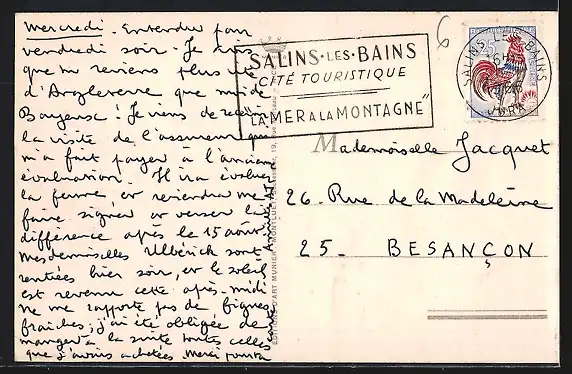 Mercredi - Entendu pour
vendredi soir - Je crois
que tu reviens plus vite
d'Angleterre que moi de
Bougeuse! Je viens de
la visite de l'assureur qui
m'a fait payer à l'ancienne
évaluation. Il va évaluer
la ferme, et reviendra me
faire signer et verser la
différence après le 15 août
Mesdemoiselles Ulbérich sont
rentrées hier soir, et le soleil
est revenu cette après-midi
ne me rapporte pas de figues
fraîches, j'ai été obligée de
manger à la suite toutes celles
que j'avais achetées. Merci pour ta
SALINS-LES-BAINS
CITÉ TOURISTIQUE
"LA MER A LA MONTAGNE"
SALINS-LES-BAINS
JURA
Mademoiselle Jacquet
26. Rue de la Madeleine
25- BESANÇON
ÉDITIONS D'ART MUNIER